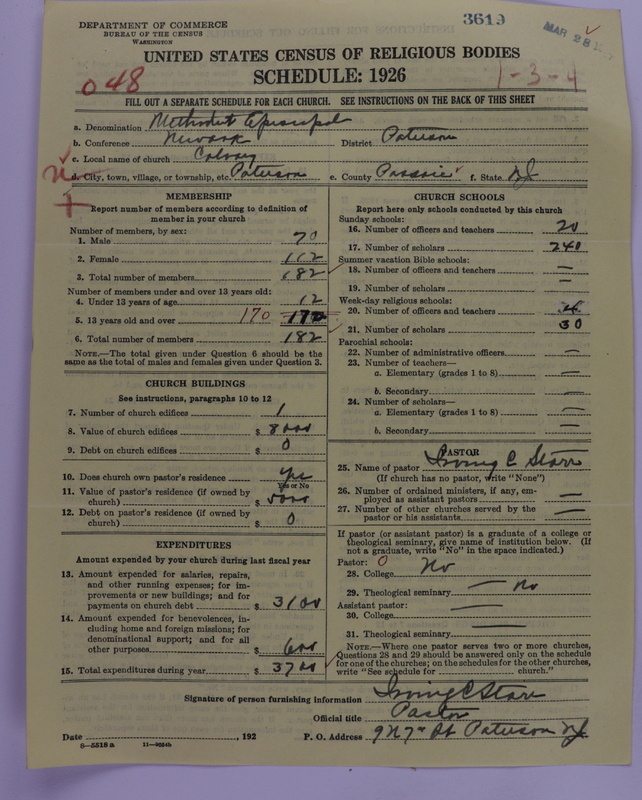 DEPARTMENT OF COMMERCE
BUREAU OF THE CENSUS
WASHINGTON
3619
MAR 28
UNITED STATES CENSUS OF RELIGIOUS BODIES
SCHEDULE: 1926
048
1-3-4
FILL OUT A SEPARATE SCHEDULE FOR EACH CHURCH. SEE INSTRUCTIONS ON THE BACK OF THIS SHEET
a. Denomination Methodist Episcopal
b. Conference Newark District Paterson
c. Local name of church Calvary
d. City, town, village, or township, etc. Paterson e. County Passaic f. State NJ
MEMBERSHIP
Report number of members according to definition of
member in your church
Number of members, by sex:
1. Male 70
2. Female 112
3. Total number of members 182
Number of members under and over 13 years old:
4. Under 13 years of age 12
5. 13 years old and over 170 170
6. Total number of members 182
NOTE.—The total given under Question 6 should be
same as the total of males and females given under Question 3.
CHURCH BUILDINGS
See instructions, paragraphs 10 to 12
7. Number of church edifices 1
8. Value of church edifices $ 8000
9. Debt on church edifices $ 0
10. Does church own pastor's residence yes
Yes or No
11. Value of pastor's residence (if owned by
church) $ 5000
12. Debt on pastor's residence (if owned by
church) $ 0
EXPENDITURES
Amount expended by your church during last fiscal year
13. Amount expended for salaries, repairs,
and other running expenses; for im-
provements or new buildings; and for
payments on church debt $ 3100
14. Amount expended for benevolences, in-
cluding home and foreign missions; for
denominational support; and for all
other purposes $ 600
15. Total expenditures during year $ 3700
CHURCH SCHOOLS
Report here only schools conducted by this church
Sunday schools:
16. Number of officers and teachers 20
17. Number of scholars 240
Summer vacation Bible schools:
18. Number of officers and teachers —
19. Number of scholars —
Week-day religious schools:
20. Number of officers and teachers
21. Number of scholars 30
Parochial schools:
22. Number of administrative officers —
23. Number of teachers—
a. Elementary (grades 1 to 8) —
b. Secondary —
24. Number of scholars—
a. Elementary (grades 1 to 8) —
b. Secondary —
PASTOR
25. Name of pastor Irving C Starr
(If church has no pastor, write "None")
26. Number of ordained ministers, if any, em-
ployed as assistant pastors —
27. Number of other churches served by the
pastor or his assistants —
If pastor (or assistant pastor) is a graduate of a college or
theological seminary, give name of institution below. (If
not a graduate, write "No" in the space indicated.)
Pastor: 0
28. College No
29. Theological seminary — No
Assistant pastor:
30. College —
31. Theological seminary —
NOTE.—Where one pastor serves two or more churches,
Questions 28 and 29 should be answered only on the schedule
for one of the churches; on the schedules for the other churches,
write "See schedule for church."
Signature of person furnishing information Irving C Starr
Official title Pastor
Date , 192 P. O. Address 9 N 7th St Paterson NJ
8—5518 a 11—9034b